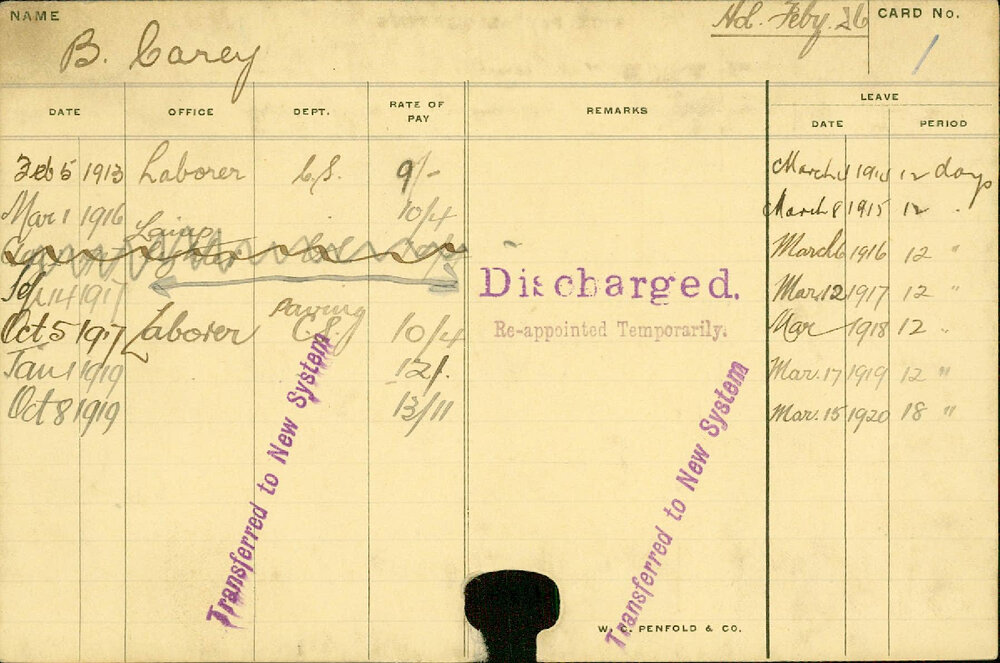 NAME
B. Carey
Ad. Feby. 26
CARD No.
1
DATE OFFICE DEPT. RATE OF PAY REMARKS LEAVE
DATE PERIOD
Feb 5 1913 Laborer C.S. 9/- March 1914 12 days
Mar 1 1916 10/4 March 8 1915 12 "
March 6 1916 12 "
1917 Discharged. Mar. 12 1917 12 "
Paving
Oct 5 1917 Laborer C.S. 10/4 Re-appointed Temporarily. Mar 1918 12 "
Jan 1 1919 12/. Mar. 17 1919 12 "
Oct 8 1919 13/11 Mar. 15 1920 18 "
Transferred to New System
Transferred to New System
W. C. PENFOLD & CO.